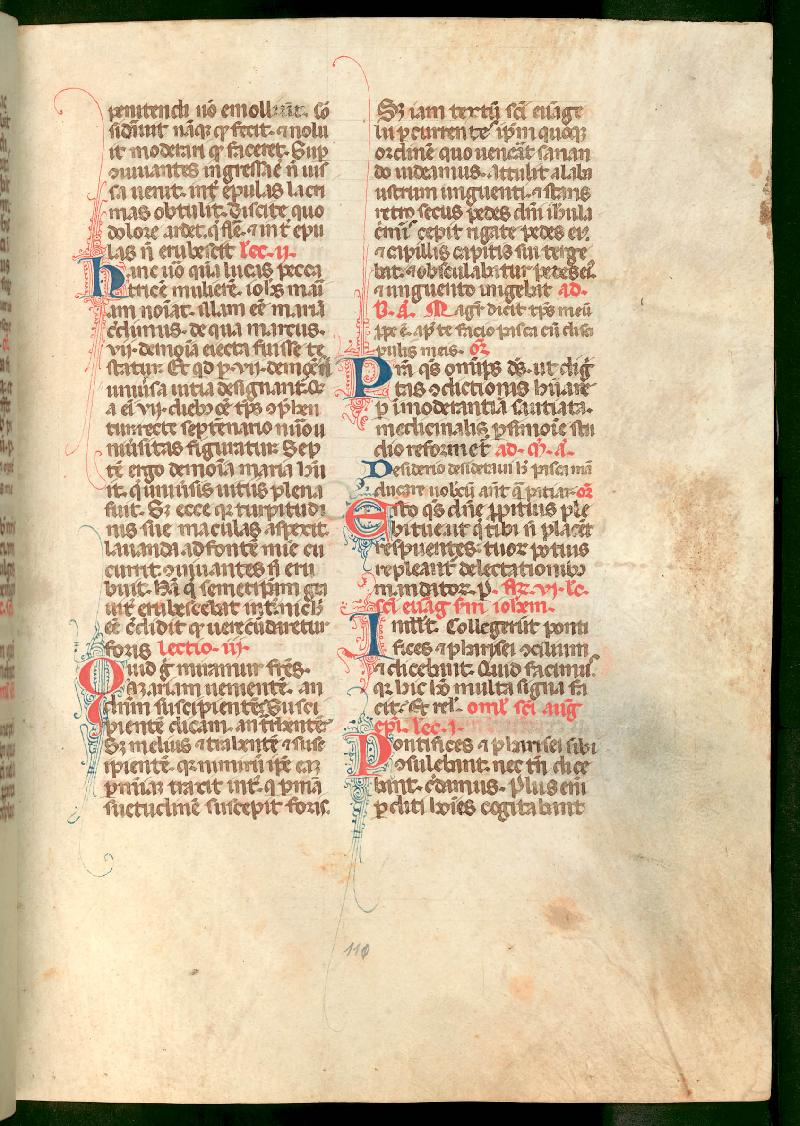 penitendi uō emolliunt. cō
sidauit nāqȝ ꝙ fecit. ⁊ nolu
it moderari ꝙ faceret. Sup
ꝯuiuantes ingressa ē ñ uis
sa uenit. int̄ epulas lacri
mas obtulit. Discite quo
dolore ardet. q̄ flē. ⁊ int̄ epu
las ñ erubescit lec. ii.
hanc uō quā lucas pecca
tricē mulierē. ioh̄s mar̄i
am noīat. illam eē mariā
c̄dimus. de qua marcus.
vii. demoīa eiecta fuisse te
statur. Et qd p vii. demōia
uniūsa uitia designant̄. Q
a ei vii. dieb ōē tp̄s ꝯphen
ditur recte septenario nūo u
niūsitas figuratur. Sep
tē ergo demoīa maria hūi
it. q̄ uniūsis uitiis plena
fuit. Sȝ ecce qr turpitudi
nis sue maculas aspexit.
lauandi ad fontē mīe cu
currit. ꝯuiuantes ñ eru
buit. Nā q̄ semetip̄am gra
uit̄ erubescebat int. nichil
eē c̄didit qr uerecūdaretur
foris lectio. iii.
Quid g̊ miramur frēs.
Mariam uenientē. an
dn̄m suscipientē. Susci
pientē dicam. an trahentē.
Sȝ melius ⁊ trahentē ⁊ susc
ipientē. qr nimirū ip̄e eā
p mīam traxit int̄. q p mā
suetudinē suscepit foris.
Sȝ iam textū sc̄i euāge
lii pcurrente ip̄m quoqȝ
ordinē quo uenerat sanan
do uideamus. Attulit alaba
ustrum unguenti. ⁊ stans
retro secus pedes dn̄i ih̄u la
c̄mis cepit rigare pedes ei.
⁊ capillis capitis sui terge
bat. ⁊ obsculabatur pedes ei.
⁊ unguento ungebat ad.
B. A. Magr̄ dicit tp̄s meū
ppe ē. ap̄ te facio pasca cū disci
pulis meis. or̄
Pr̄a qs om̄ips ds̄. ut dig
tas ꝯdictionis hūane
p īmoderantiā sauciata.
medicinalis psimoīe stu
dio reformet̄ ad. M. A.
Desiderio desideraui h̄ pasca mā
ducare uobcū añt q̄ patiar. or̄
Esto qs dn̄e ppitius ple
bi tue ut q̄ tibi ñ placēt
respuentes. tuoȝ potius
repleant̄ delectationib
mandatoȝ. p. fer̄. vi. lc.
sc̄i euāg fm̄ ioh̄em.
In illt̄. Collegerūt ponti
fices ⁊ pharisei ꝯcilium
⁊ dicebant. Quid facimus.
qr hic hō multa signa fa
cit. Et rel̄. oml̄. sc̄i aug
epi. lec. i.
Pontifices ⁊ pharisei sibi
ꝯsulebant. nec tn̄ dice
bant. c̄damus. Plus eni
pditi hoīes cogitabant
110